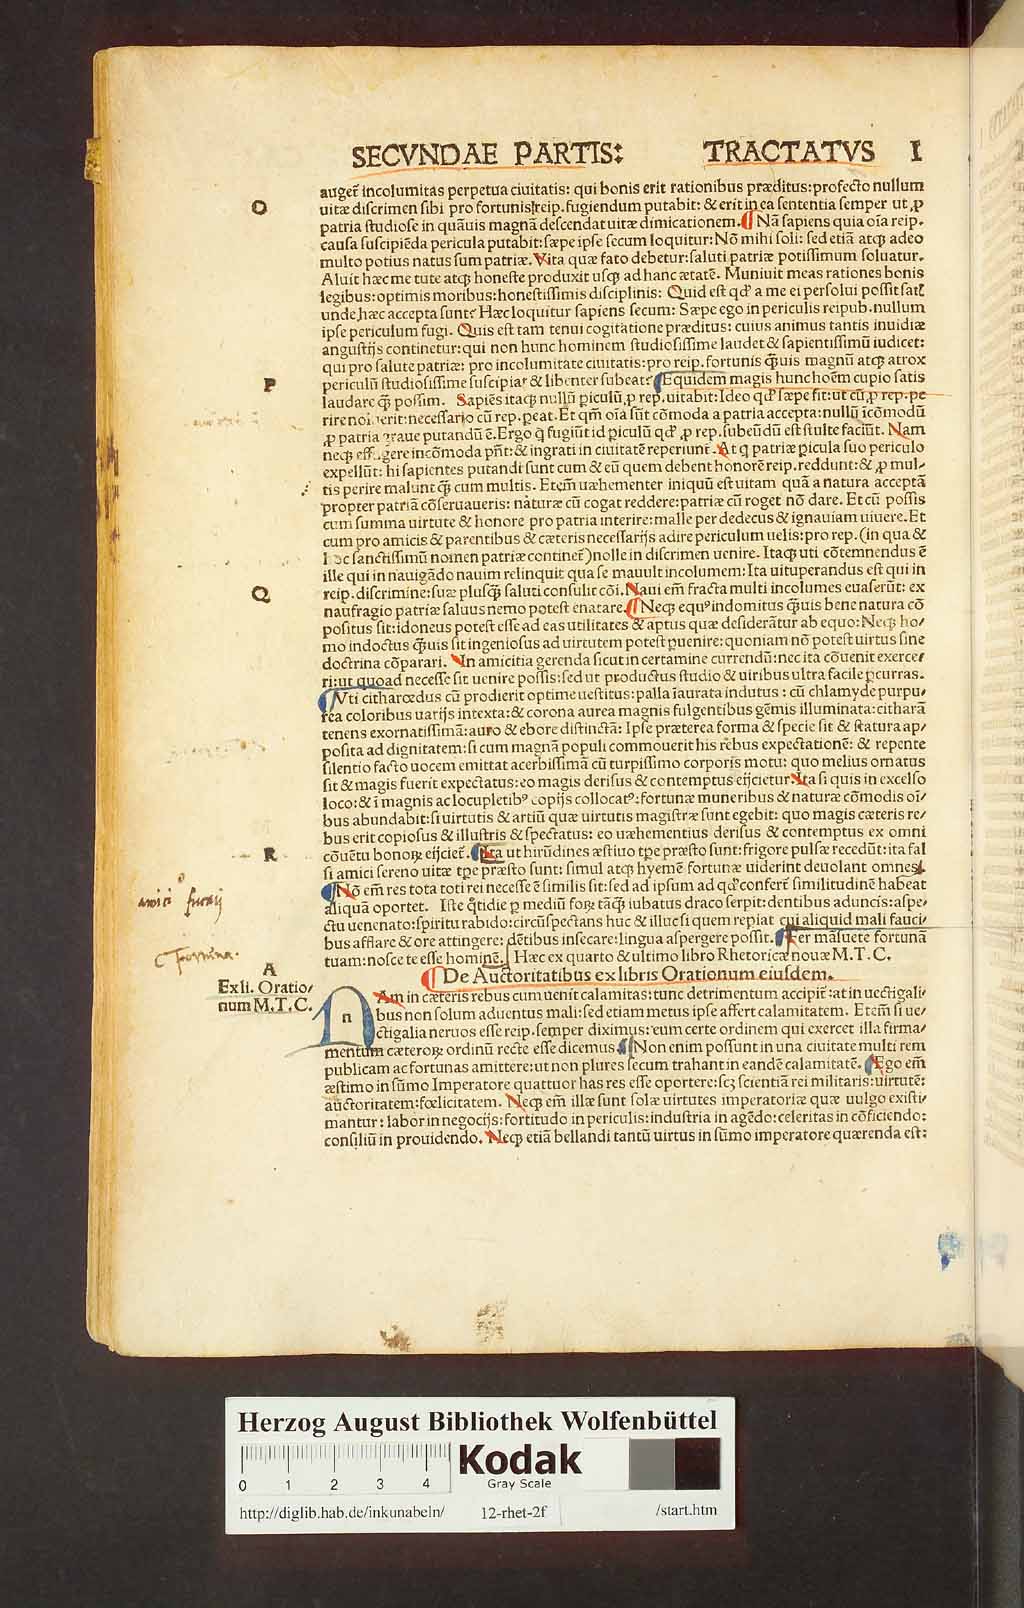 SECVNDAE PARTIS: TRACTATVS I
augeť incolumitas perpetua ciuitatis: qui bonis erit rationibus præditus: profecto nullum
O
uitæ discrimen sibi pro fortunis reip. fugiendum putabit: & erit in ea sententia semper ut ꝓ
patria studiose in quãuis magnã descendat uitæ dimicationem. Nã sapiens quia oĩa reip.
causa suscipiẽda pericula putabit: sæpe ipse secum loquitur: Nõ mihi soli: sed etiã atqꝫ adeo
multo potius natus sum patriæ. Vita quæ fato debetur: saluti patriæ potissimum soluatur.
Aluit hæc me tute atqꝫ honeste produxit usqꝫ ad hanc ætatẽ. Muniuit meas rationes bonis
legibus: optimis moribus: honestissimis disciplinis: Quid est qđ a me ei persolui possit
unde hæc accepta sunt? Hæc loquitur sapiens secum: Sæpe ego in periculis reipub. nullum
ipse periculum fugi. Quis est tam tenui cogitatione præditus: cuius animus tantis inuidiæ
angustijs continetur: qui non hunc hominem studiosissime laudet & sapientissimũ iudicet:
qui pro salute patriæ: pro incolumitate ciuitatis: pro reip. fortunis q̃uis magnũ atqꝫ atrox
P
periculũ studiosissime suscipiat & libenter subeat? Equidem magis hunc hoẽm cupio satis
laudare q̃ possim. Sapiẽs itaqꝫ nullũ piculũ ꝓ rep. uitabit: Ideo qđ sæpe fit: ut cũ ꝓ rep. pe
rire necessario cũ rep. peat. Et qm̃ oĩa sũt cõmoda a patria accepta: nullũ ĩcõmodũ
ꝓ patria graue putandũ ẽ. Ergo q̃ fugiũt id piculũ qđ ꝓ rep. subeũdũ est stulte faciũt. Nam
neqꝫ incõmoda pñt: & ingrati in ciuitate reperiunť. At q̃ patriæ picula suo periculo
expellũt: hi sapientes putandi sunt cum & eũ quem debent honorẽ reip. reddunt: & ꝓ mul⸗
tis perire malunt q̃ cum multis. Etem̃ uæhementer iniquũ est uitam quã a natura acceptã
propter patriã cõseruaueris: naturæ cũ cogat reddere: patriæ cũ roget nõ dare. Et cũ possis
cum summa uirtute & honore pro patria interire: malle per dedecus & ignauiam uiuere. Et
cum pro amicis & parentibus & cæteris necessarijs adire periculum uelis: pro rep. (in qua &
hoc sanctissimũ nomen patriæ contineť) nolle in discrimen uenire. Itaqꝫ uti cõtemnendus ẽ
ille qui in nauigãdo nauim relinquit qua se mauult incolumem: Ita uituperandus est qui in
Q
reip. discrimine: suæ plusq̃ saluti consulit cõi. Naui em̃ fracta multi incolumes euaserũt: ex
naufragio patriæ saluus nemo potest enatare. Neqꝫ equꝰ indomitus q̃uis bene natura cõ
positus sit: idoneus potest esse ad eas utilitates & aptus quæ desiderãtur ab equo: Neqꝫ ho⸗
mo indoctus q̃uis sit ingeniosus ad uirtutem potest puenire: quoniam nõ potest uirtus sine
doctrina cõparari. In amicitia gerenda sicut in certamine currendũ: nec ita cõuenit exerce⸗
ri: ut quoad necesse sit uenire possis: sed ut productus studio & uiribus ultra facile pcurras.
Vti citharœdus cũ prodierit optime uestitus: palla ĩaurata indutus: cũ chlamyde purpu⸗
rea coloribus uarijs intexta: & corona aurea magnis fulgentibus gẽmis illuminata: citharã
tenens exornatissimã: auro & ebore distinctã: Ipse præterea forma & specie sit & statura ap⸗
posita ad dignitatem: si cum magnã populi commouerit his rebus expectationẽ: & repente
silentio facto uocem emittat acerbissimã cũ turpissimo corporis motu: quo melius ornatus
sit & magis fuerit expectatus: eo magis derisus & contemptus eijcietur. Ita si quis in excelso
loco: & ĩ magnis ac locupletibꝰ copijs collocatꝰ: fortunæ muneribus & naturæ cõmodis oĩ⸗
bus abundabit: si uirtutis & artiũ quæ uirtutis magistræ sunt egebit: quo magis cæteris re⸗
bus erit copiosus & illustris & spectatus: eo uæhementius derisus & contemptus ex omni
R
cõuẽtu bonoꝝ eijcieť. Ita ut hirũdines æstiuo tp̃e præsto sunt: frigore pulsæ recedũt: ita fal
si amici sereno uitæ tp̃e præsto sunt: simul atqꝫ hyemẽ fortunæ uiderint deuolant omnes.
Nõ em̃ res tota toti rei necesse ẽ similis sit: sed ad ipsum ad qđ conferť similitudinẽ habeat
aliquã oportet. Iste q̃tidie p mediũ foꝝ tãq̃ iubatus draco serpit: dentibus aduncis: aspe⸗
ctu uenenato: spiritu rabido: circũspectans huc & illuc si quem repiat cui aliquid mali fauci⸗
bus afflare & ore attingere: dẽtibus insecare: lingua aspergere possit. Fer mãsuete fortunã
tuam: nosce te esse hominẽ. Hæc ex quarto & ultimo libro Rhetoricæ nouæ M.T.C.
amici
fortuna.
De Auctoritatibus ex libris Orationum eiusdem.
A
Ex li. Oratio⸗
num M.T.C.
n
Am in cæteris rebus cum uenit calamitas: tunc detrimentum accipiť: at in uectigali⸗
bus non solum aduentus mali: sed etiam metus ipse affert calamitatem. Etem̃ si ue⸗
ctigalia neruos esse reip. semper diximus: eum certe ordinem qui exercet illa firma⸗
mentum cæteroꝝ ordinũ recte esse dicemus. Non enim possunt in una ciuitate multi rem
publicam ac fortunas amittere: ut non plures secum trahant in eandẽ calamitatẽ. Ego em̃
æstimo in sũmo Imperatore quattuor has res esse oportere: scꝫ scientiã rei militaris: uirtutẽ:
auctoritatem: fœlicitatem. Neqꝫ em̃ illæ sunt solæ uirtutes imperatoriæ quæ uulgo existi⸗
mantur: labor in negocijs: fortitudo in periculis: industria in agẽdo: celeritas in cõficiendo:
consiliũ in prouidendo. Neqꝫ etiã bellandi tantũ uirtus in sũmo imperatore quærenda est:
Herzog August Bibliothek Wolfenbüttel
0 1 2 3 4
Kodak
Gray Scale
http://diglib.hab.de/inkunabeln/ 12-rhet-2f /start.htm